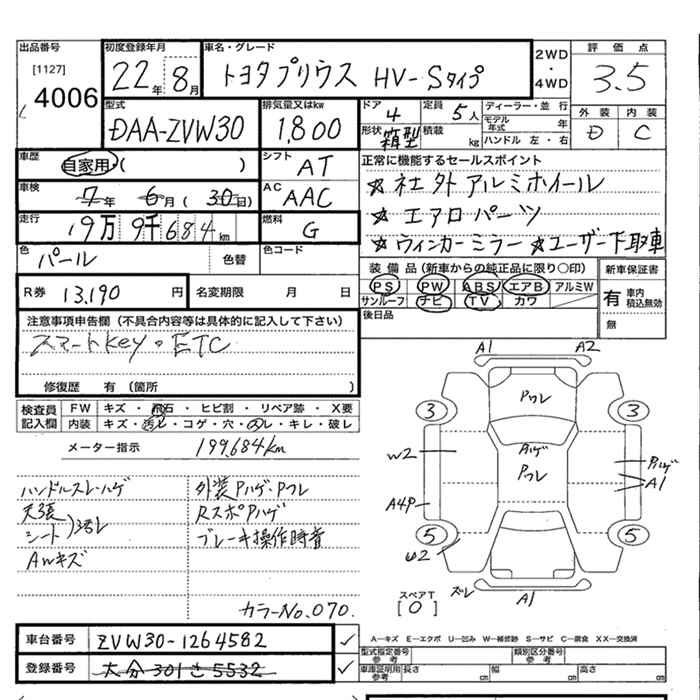 出品番号
[1127]
4006
初度登録年月
22年 8月
車名・グレード
トヨタプリウス HV-Sタイプ
2WD
・
4WD
評価点
3.5
外装 内装
D C
型式
DAA-ZVW30
排気量又はkw
1,800
ドア 4
定員 5人
ディーラー・並行
モデル年式 年
形状 箱型
積載 kg
ハンドル 左・右
車歴
自家用 ( )
シフト
AT
車検
7年 6月 (30日)
AC
AAC
走行
19万 9千684km
燃料
G
色
パール
色替
色コード
R券 13,190円
名変期限 月 日
正常に機能するセールスポイント
☆社外アルミホイール
☆エアロパーツ
☆ウィンカーミラー ☆ユーザー下取車
装備品(新車からの純正品に限り○印)
PS PW ABS エアB アルミW
サンルーフ ナビ TV カワ
後日品
新車保証書
有 車内積込無効
無
注意事項申告欄(不具合内容等は具体的に記入して下さい)
スマートKey・ETC
修復歴 有(箇所 )
検査員記入欄
FW キズ・飛石・ヒビ割・リペア跡・X要
内装 キズ・汚レ・コゲ・穴・のレ・キレ・破レ
メーター指示 199,684km
ハンドルスレ・ハゲ
天張
シート
汚レ
AWキズ
外装Pハゲ・Pワレ
RスポPハゲ
ブレーキ操作時音
カラーNo,070.
A1 A2
Pワレ
3 3
W2
Pハゲ
Pワレ
Pハゲ
A1
A4P
5 5
W2
ズレ
A1
スペアT
[0]
A—キズ E—エクボ U—凹み W—補修跡 S—サビ C—腐食 XX—交換済
車台番号 ZVW30-1264582 ✓
登録番号 大分 301 さ 5532 ✓
型式指定番号 参考
類別区分番号 参考
車庫証明用 参考 長さ cm 幅 cm 高さ cm